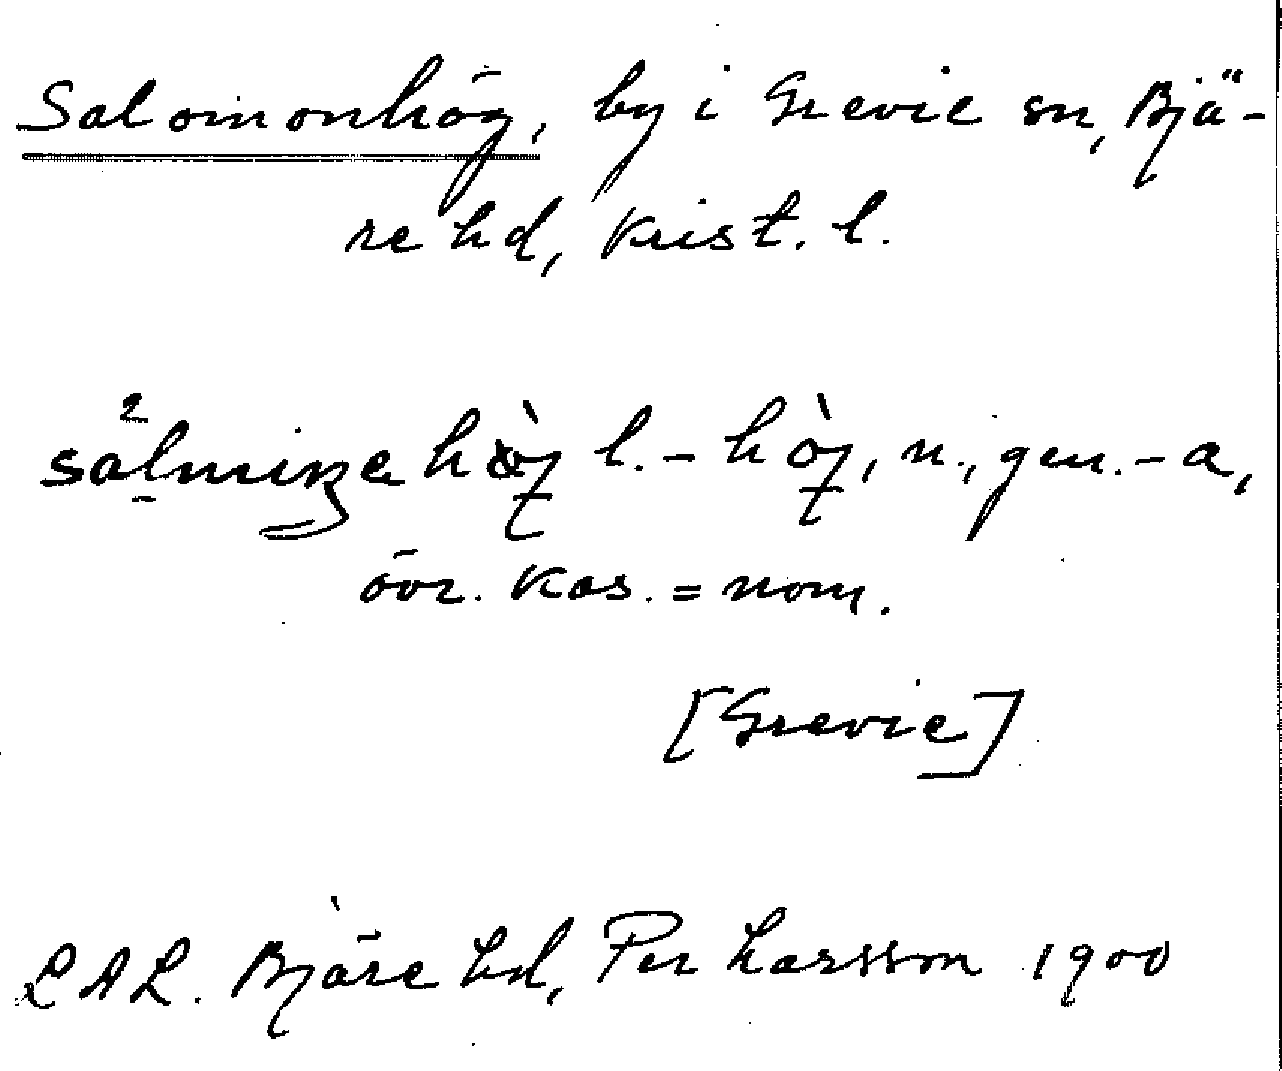 Salomonhög, by i Grevie sn, Bjä-
re hd, Krist. l.
hög l. - hög, n., gen. - a,
övr. kas. = nom.
[Grevie]
LAL. Bjäre hd, Per Larsson 1900